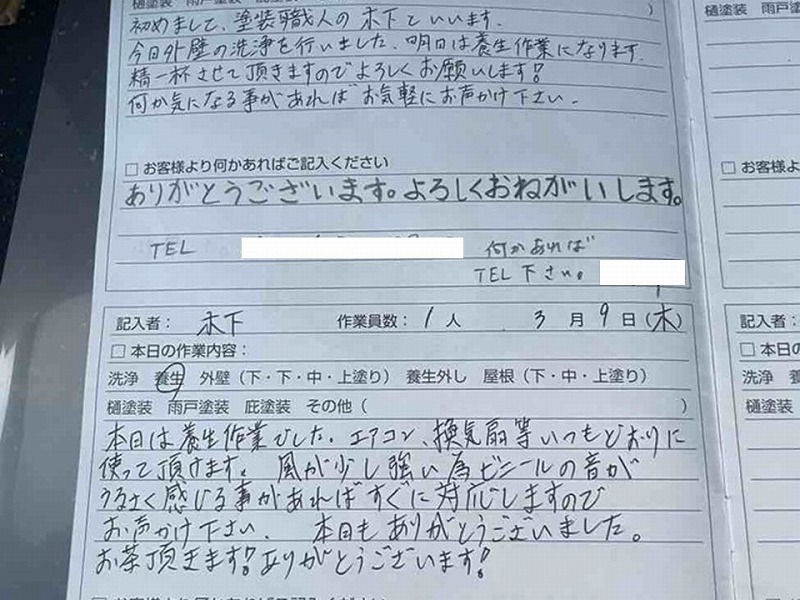 樋塗装 雨戸塗装 )
初めまして、塗装職人の木下といいます。
今日外壁の洗浄を行いました。明日は養生作業になります。
精一杯させて頂きますのでよろしくお願いします!
何か気になる事があればお気軽にお声かけ下さい。
□ お客様より何かあればご記入ください
ありがとうございます。よろしくおねがいします。
TEL 何かあれば
TEL下さい。
記入者: 木下 作業員数: 1人 3月9日(木)
□ 本日の作業内容:
洗浄 養生 外壁(下・下・中・上塗り) 養生外し 屋根(下・中・上塗り)
樋塗装 雨戸塗装 庇塗装 その他( )
本日は養生作業でした。エアコン、換気扇等いつもどおりに
使って頂けます。風が少し強い為ビニールの音が
うるさく感じる事があればすぐに対応しますので
お声かけ下さい。 本日もありがとうございました。
お茶頂きます!ありがとうございます!
樋塗装 雨戸塗
□ お客様よ
記入者:
□ 本日の
洗浄 養
樋塗装